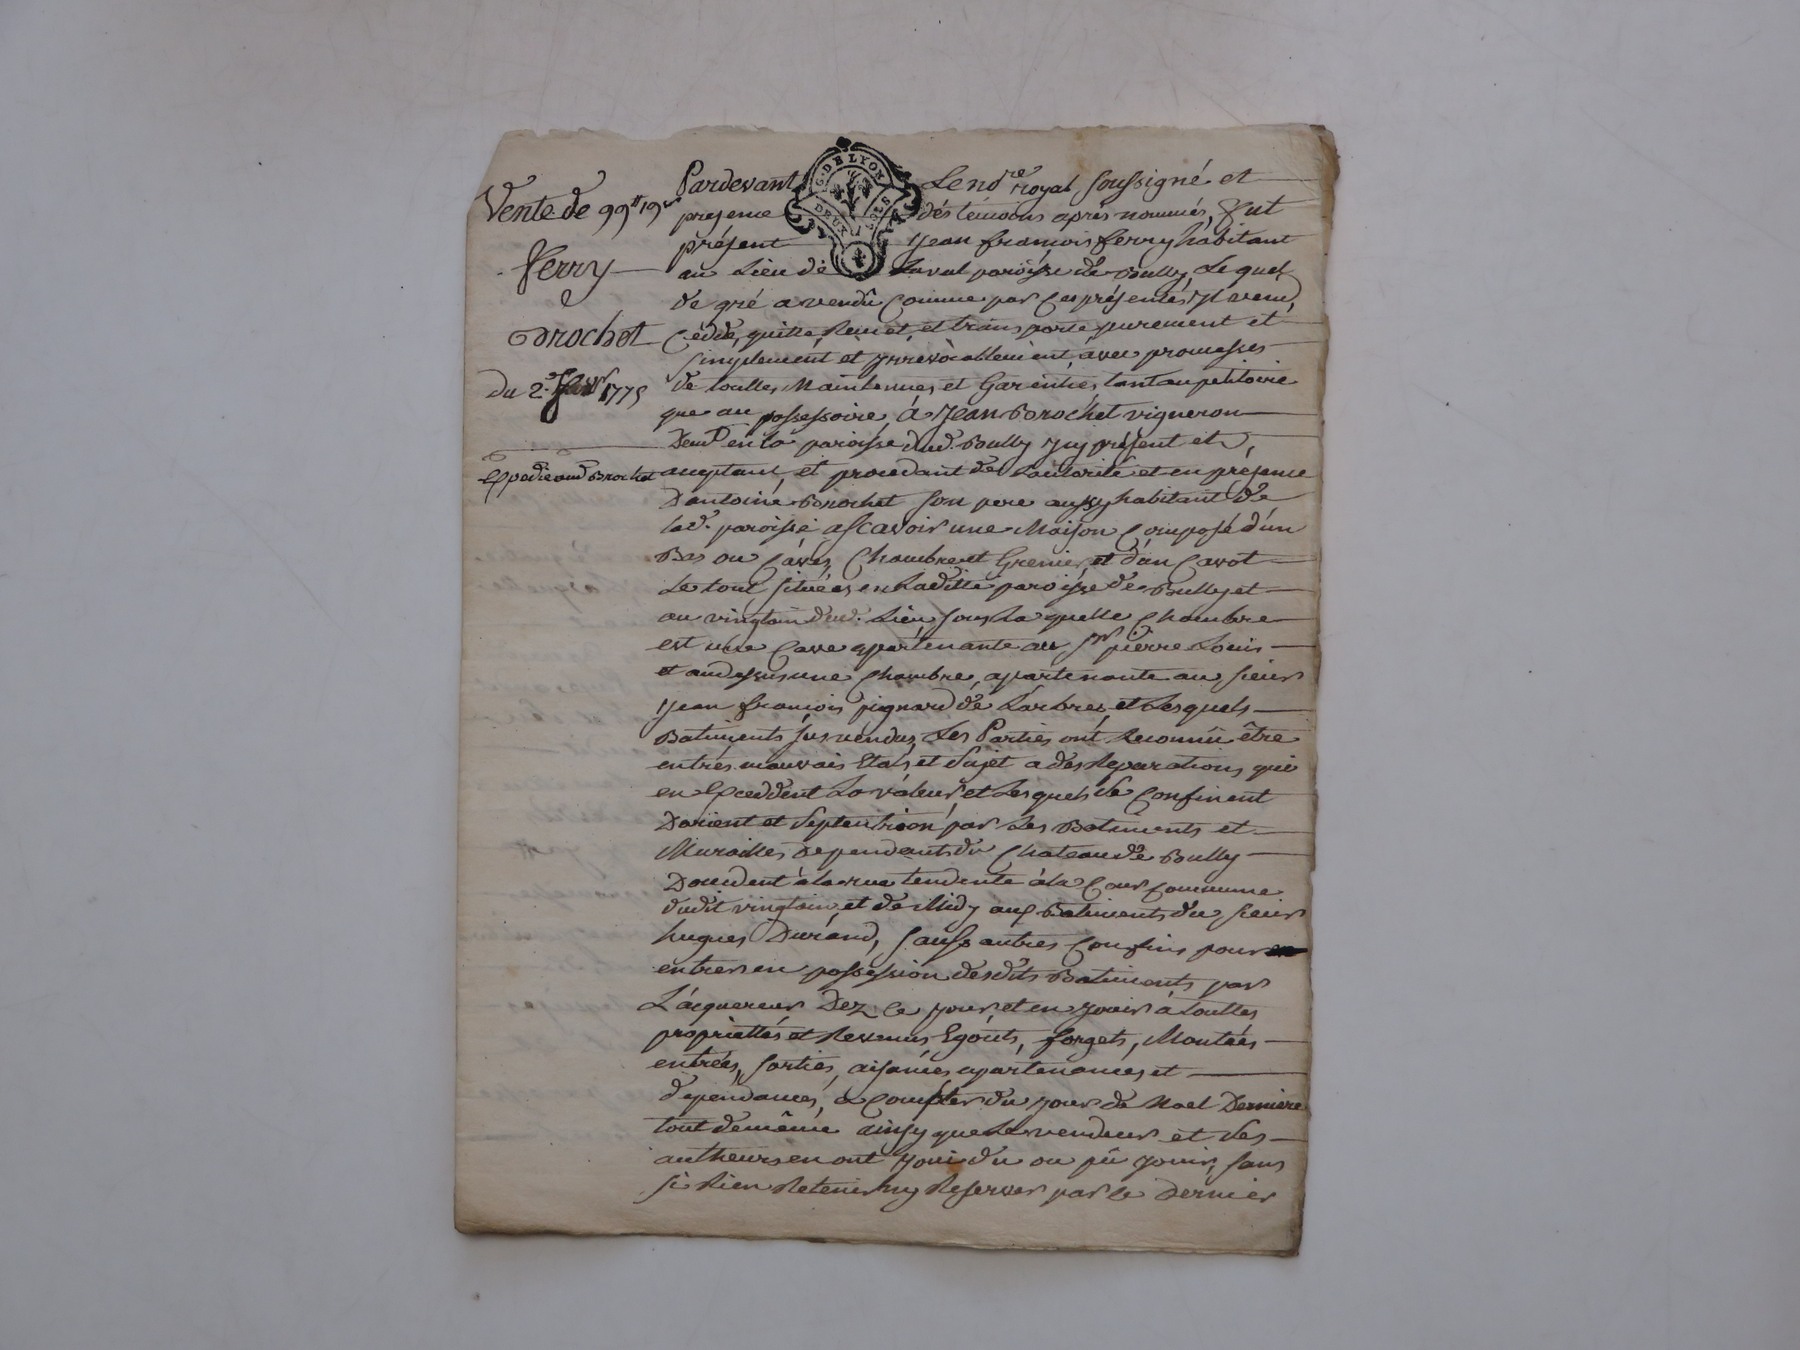 Vente de 99# 19s
ferry
Brochet
Du 2e Janvr 1775
Expedié aud Brochet
G. DE LYON
DEUX SOLS
Pardevant Le nore royal, soussigné et
presence dés témoins aprés nommés, fut
présent Jean françois ferry habitant
au Lieu dé Laval paroisse dé Bully, Le quel
de gré a vendu comme par ces présentés Il vend,
Cédde, quitte, Remet, et transporte purement et
simplement et Irrevocablement, avec promesses
de touttes Maintenues et Garenties, tant au petitoire
que au possessoire, á Jean Brochet vigneron
Demt en la paroisse dud. Bully Icy présent et
acceptant, et procedant de L'autorité et en présence
D'antoine Brochet son pere aussy habitant de
lad. paroisse ascavoir une Maison Composé d'un
Bas ou Cave, Chambre et Grenier, et d'un Cavot
Le tout situées en Laditte paroisse de Bully et
au vingtain dud. Lieu sous La quelle Chambre
est une Cave apartenante au sr pierre Louis
et audessus une Chambre, apartenante au sieur
Jean françois pignard dé Larbre, et Lesquels
Batiments susvendus, Les Parties ont Reconnu être
en très mauvais Etat, et Sujet a des Reparations qui
en Excedent La valeur, et Lesquels se Confinent
D'orient et Septentrion par Les Batiments et
Murailles Dependants du Chateau de Bully
D'occident à la rue tendente à la Cour commune
dudit vingtain, et de Midy aux Batiments du sieur
hugues Durand, Saufs autres Confins pour
entrer en possession desdits Batiments par
L'acquereur Dez ce jour, et en Jouir à touttes
proprietés et Revenus Egouts, forgets, Montées
entrées, sorties, aisances apartenances et
dependances, à Compter du jour de Noel Dernière
tout demême ainsy que Le vendeur et Ses
autheurs en ont Joui du ou pû Jouir, sans
si Rien Retenir ny Reserver par le Dernier